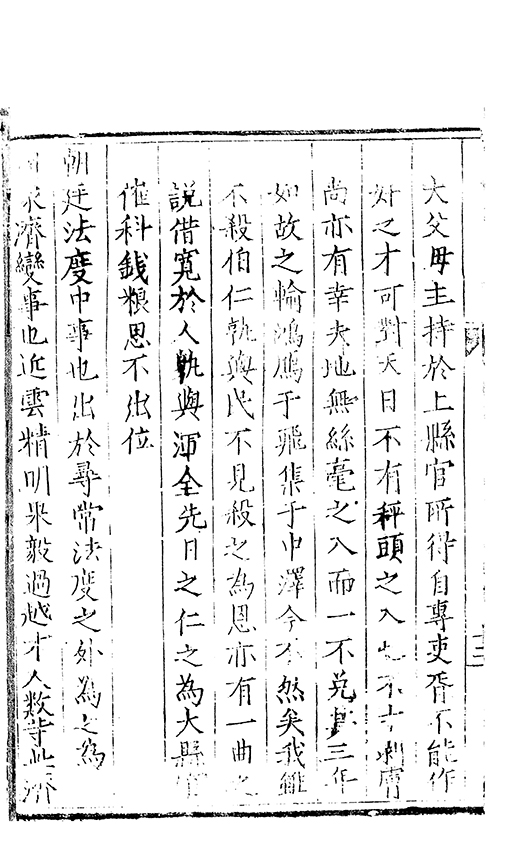 大父母主持於上縣官所得自專吏胥不能作
奸之才可對天日不有秤頭之入也不 剝膚
尚亦有幸夫地無絲毫之入而一不兌其三年
如故之輸鴻鴈于飛集于中澤今不然矣我雖
不殺伯仁孰與民不見殺之為恩亦有一曲之
說借寬於人孰與渾全先日之仁之為大縣官
催科錢粮思不出位
朝廷法度中事也出於尋常法度之外為之為
求濟變事也近雲精明果毅過越才人數等此濟
三